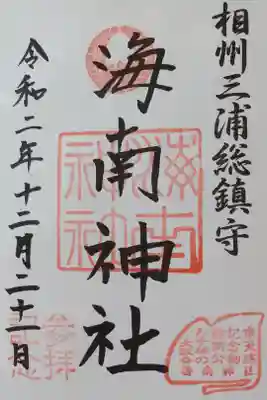 相州三浦総鎮守
海南神社
令和二年十二月二十一日
海南神社
参拝記念